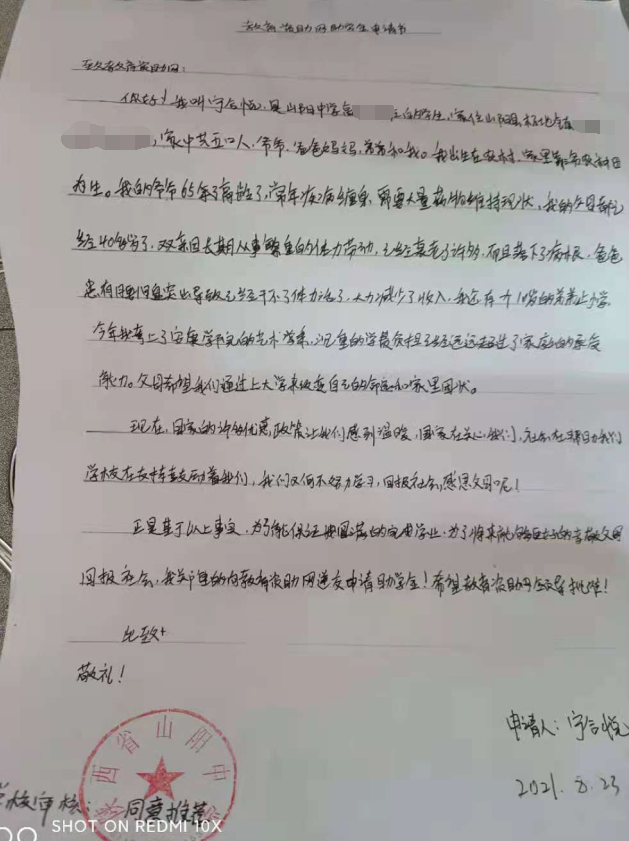 教育资助网助学生申请书
至教育资助网：
你好！我叫宁合悦，是山阳中学高 的学生，家住山阳县
，家中共五口人，爷爷，爸爸妈妈，弟弟和我。我出生在农村，家里靠务农种田
为生。我的爷爷65年了高龄了，常年疾病缠身，需要大量药物维持现状，我的父母都已
经40多岁了，双亲因长期从事繁重的体力劳动，已经衰老了许多，而且落下了病根，爸爸
患有腰间盘突出导致已经干不了体力活了，大力减少了收入，我还有个10岁的弟弟上小学，
今年我考上了安康学院的艺术学系，沉重的学费负担了经远远超过了家庭的承受
能力。父母希望我们通过上大学来改变自己的命运和家里困状。
现在，国家的许多优惠政策让我们感到温暖，国家在关心我们，社会在帮助我们
学校在支持鼓动着我们，我们又何不努力学习，回报社会，感恩父母呢！
正是基于以上事实，为了能保证我圆满的完成学业，为了将来能够更好的孝敬父母
回报社会，我郑重的向教育资助网递交申请助学金！希望教育资助网领导批准！
此致
敬礼！
申请人：宁合悦
2021.8.23
陕西省山阳中学
学校审核：同意推荐
SHOT ON REDMI 10X